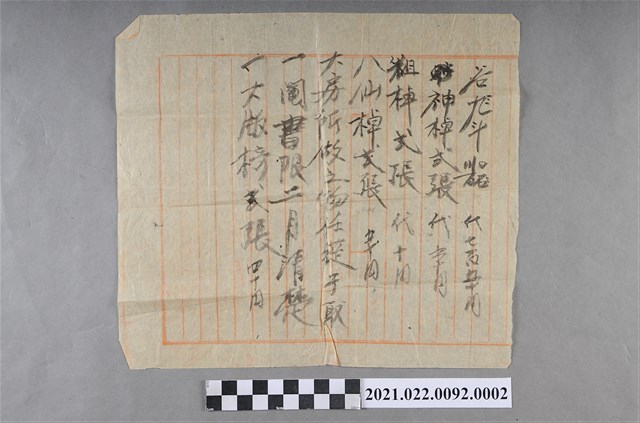 谷尨斗 代七百五十円
神棹弍張 代五十円
祖棹弍張 代十円
八仙棹弍張 五十円
大房所做之物任從手取
一閹書限二月清楚
一大椅弍張 四十円
2021.022.0092.0002